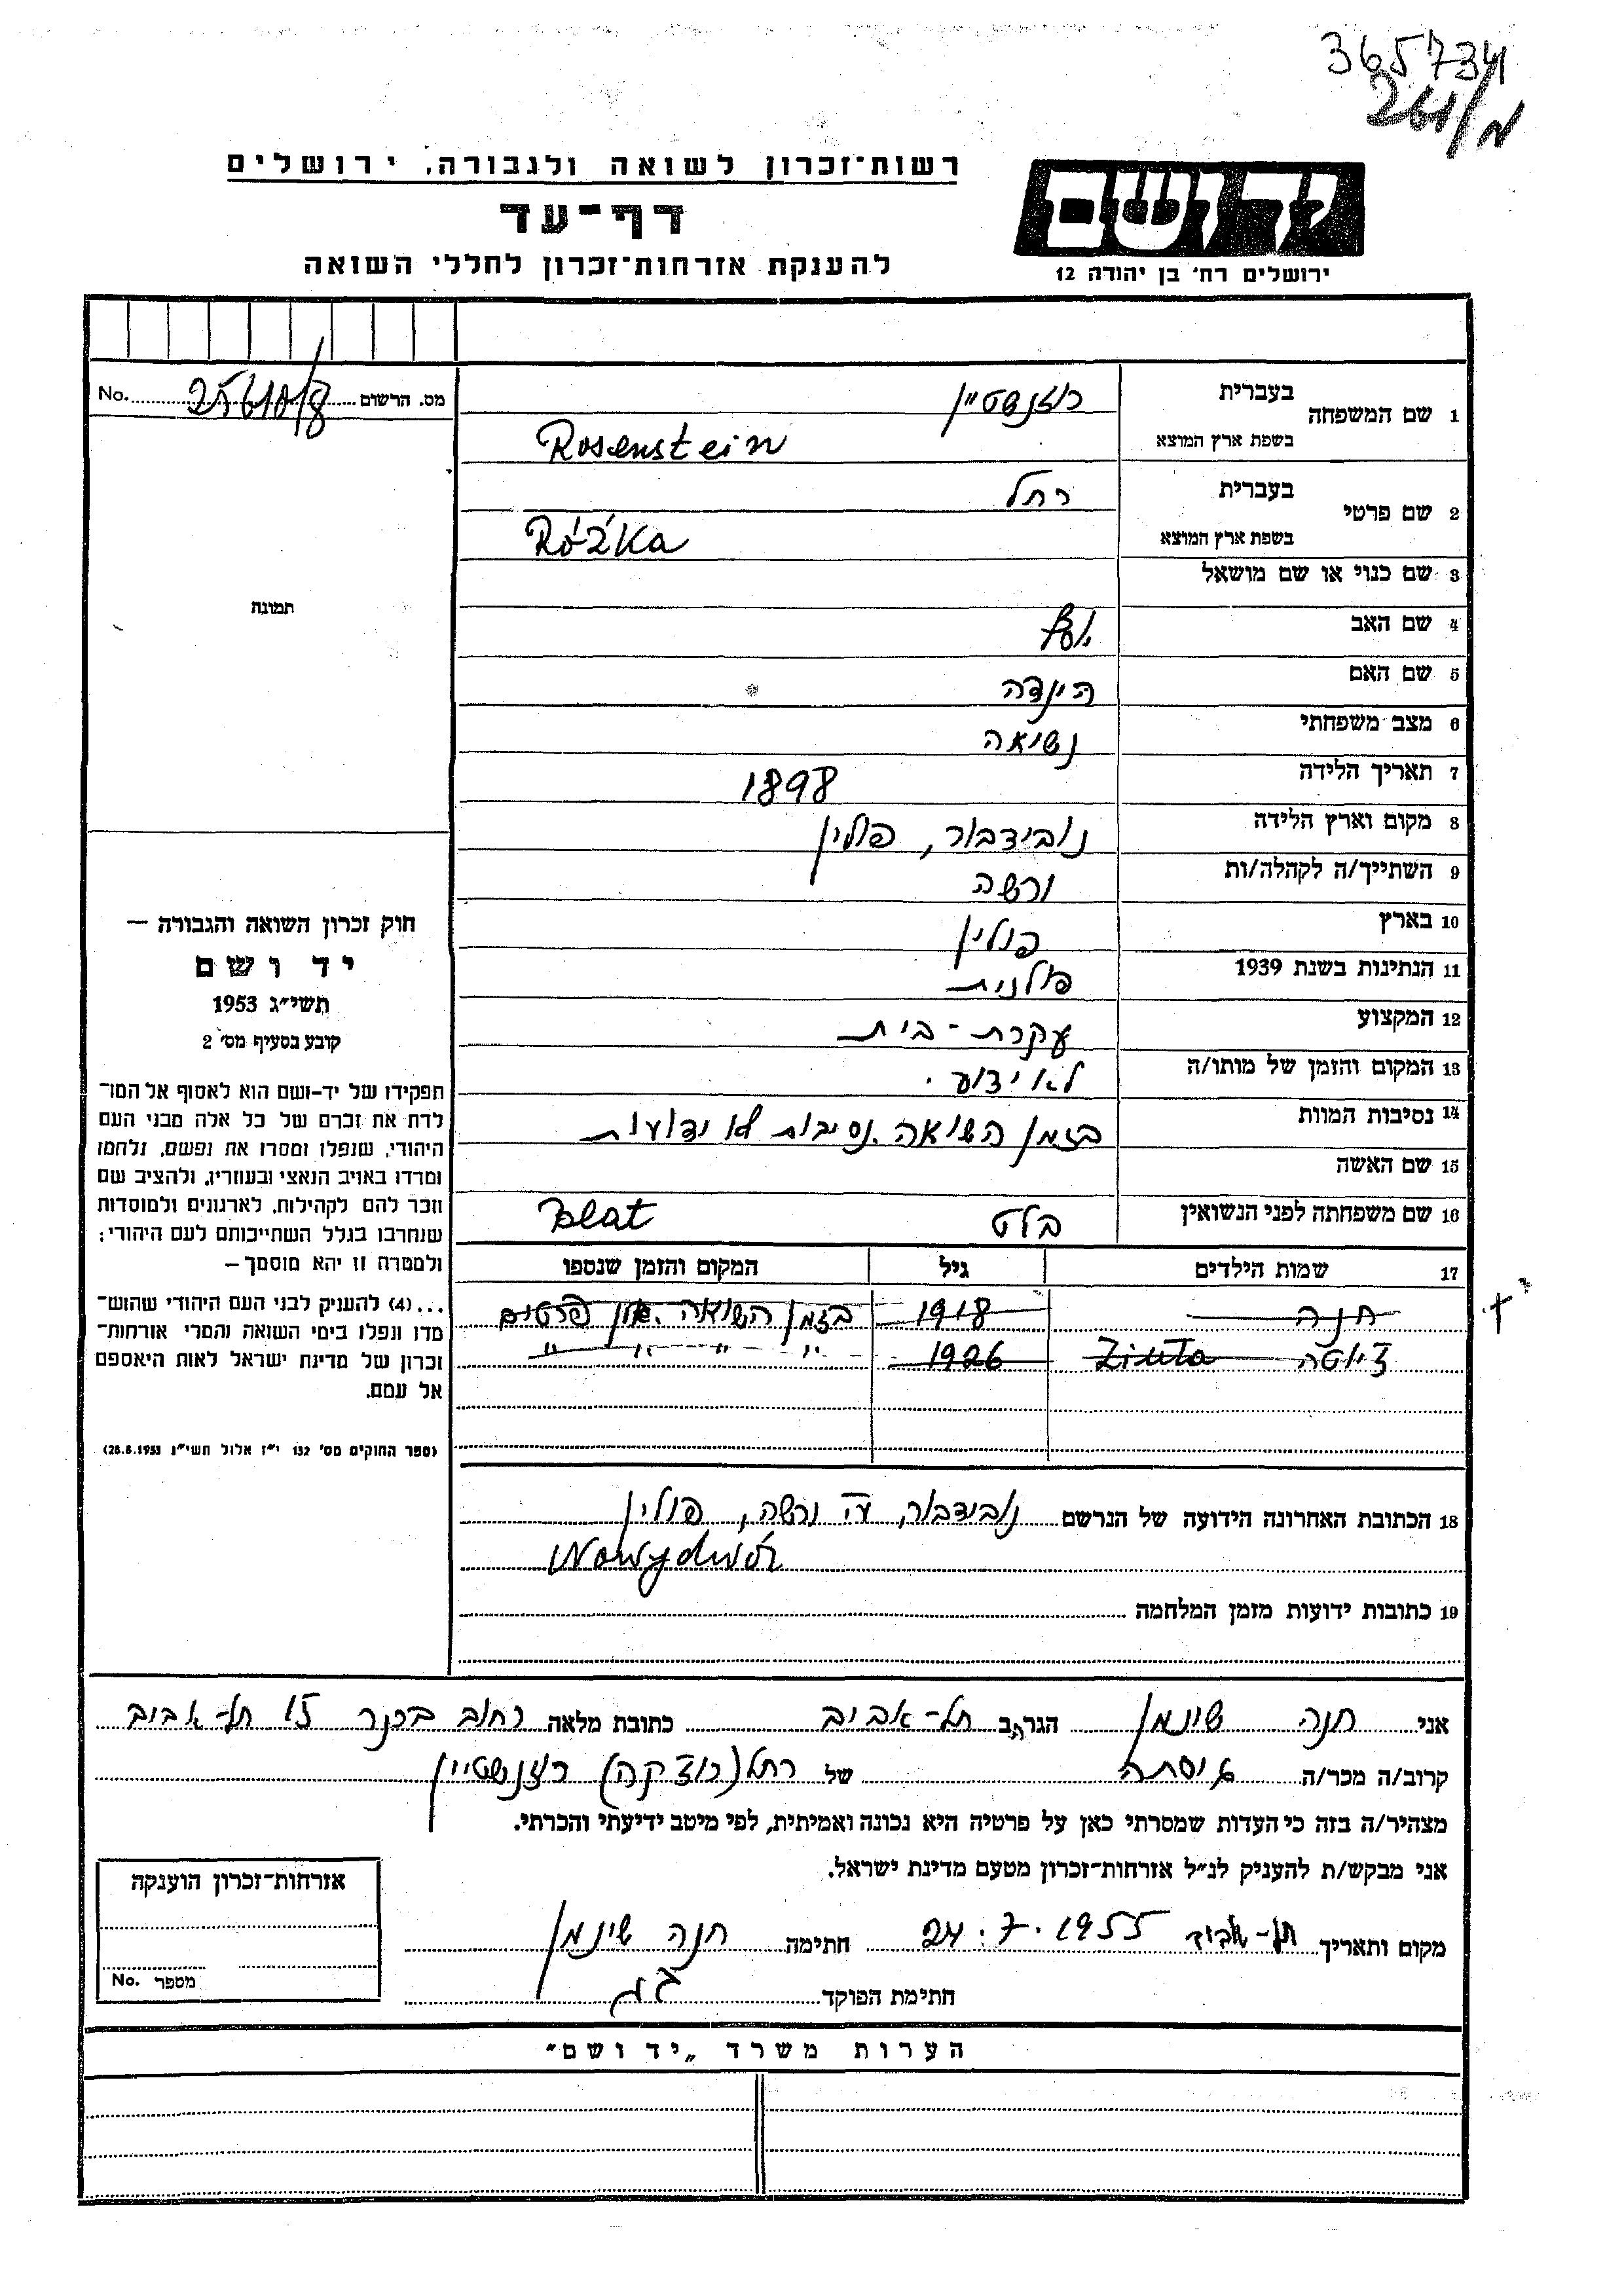 365734
261/מ
רשות־זכרון לשואה ולגבורה, ירושלים
דף־עד
להענקת אזרחות־זכרון לחללי השואה
יד ושם
ירושלים רח׳ בן יהודה 12
מס. הרשום No.
1 שם המשפחה בעברית רוזנשטיין
בשפת ארץ המוצא Rosenstein
2 שם פרטי בעברית רחל
בשפת ארץ המוצא Różka
3 שם כנוי או שם מושאל
4 שם האב
5 שם האם הינדה
6 מצב משפחתי נשואה
7 תאריך הלידה 1898
8 מקום וארץ הלידה נובידבור, פולין
9 השתייך/ה לקהלה/ות ורשה
10 בארץ פולין
11 הנתינות בשנת 1939 פולנית
12 המקצוע עקרת-בית
13 המקום והזמן של מותו/ה לא ידוע.
14 נסיבות המוות בזמן השואה. נסיבות לא ידועות
15 שם האשה
16 שם משפחתה לפני הנשואין בלט Blat
17 שמות הילדים גיל המקום והזמן שנספו
חנה 1918 בזמן השואה. אין פרטים
ציוטה Ziuta 1926 " " " "
18 הכתובת האחרונה הידועה של הנרשם נובידבור, ע"י ורשה, פולין
Nowydwór
19 כתובות ידועות מזמן המלחמה
תמונה
חוק זכרון השואה והגבורה —
יד ושם
תשי״ג 1953
קובע בסעיף מס׳ 2
תפקידו של יד-ושם הוא לאסוף אל המו־
לדת את זכרם של כל אלה מבני העם
היהודי, שנפלו ומסרו את נפשם, נלחמו
ומרדו באויב הנאצי ובעוזריו, ולהציב שם
וזכר להם לקהילות, לארגונים ולמוסדות
שנחרבו בגלל השתייכותם לעם היהודי;
ולמטרה זו יהא מוסמך —
...(4) להעניק לבני העם היהודי שהוש־
מדו ונפלו בימי השואה והמרי אזרחות־
זכרון של מדינת ישראל לאות היאספם
אל עמם.
(ספר החוקים מס׳ 132 י״ז אלול תשי״ג 28.8.1953)
אני חנה שינמן הגרה ב תל-אביב כתובת מלאה רחוב 15 תל-אביב
קרוב/ה מכר/ה גיסתה של רחל (רוצקה) רוזנשטיין
מצהיר/ה בזה כי העדות שמסרתי כאן על פרטיה היא נכונה ואמיתית, לפי מיטב ידיעתי והכרתי.
אני מבקש/ת להעניק לנ״ל אזרחות־זכרון מטעם מדינת ישראל.
מקום ותאריך תל-אביב 24.7.1955 חתימה חנה שינמן
חתימת הפוקד
אזרחות־זכרון הוענקה
מספר No.
הערות משרד „יד ושם״